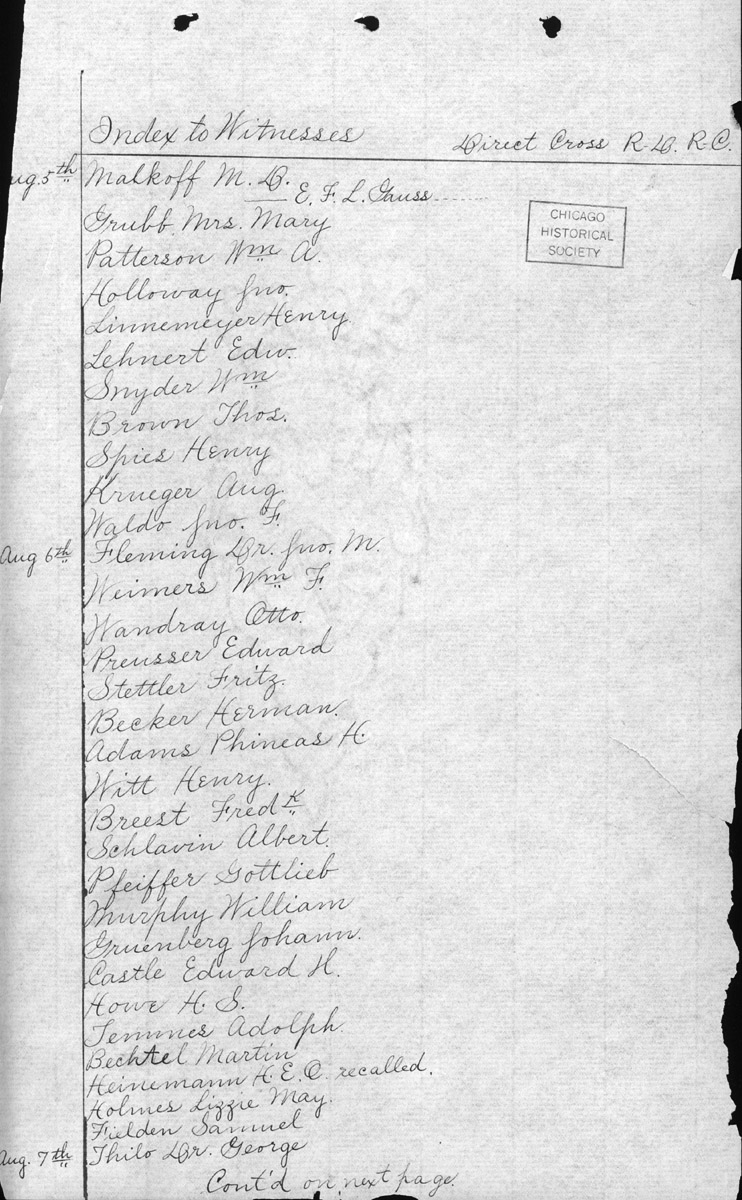 Index to Witnesses Direct Cross R-D. R-C.
Aug. 5th Malkoff M. D.
E. F. L. Gauss
CHICAGO
HISTORICAL
SOCIETY
Grubb Mrs. Mary
Patterson Wm A.
Holloway Jno.
Linnemeyer Henry
Lehnert Edw.
Snyder Wm
Brown Thos.
Spies Henry
Krueger Aug.
Waldo Jno. F.
Aug 6th Fleming Dr. Jno. M.
Weimers Wm F.
Wandray Otto.
Preusser Edward
Stettler Fritz.
Becker Herman.
Adams Phineas H.
Witt Henry.
Breest Fredk
Schlavin Albert.
Pfeiffer Gottlieb
Murphy William
Gruenberg Johann.
Castle Edward H.
Howe H. S.
Temmes Adolph.
Bechtel Martin
Heinemann H. E. O. recalled.
Holmes Lizzie May.
Fielden Samuel
Aug. 7th Thilo Dr. George
Cont'd on next page.